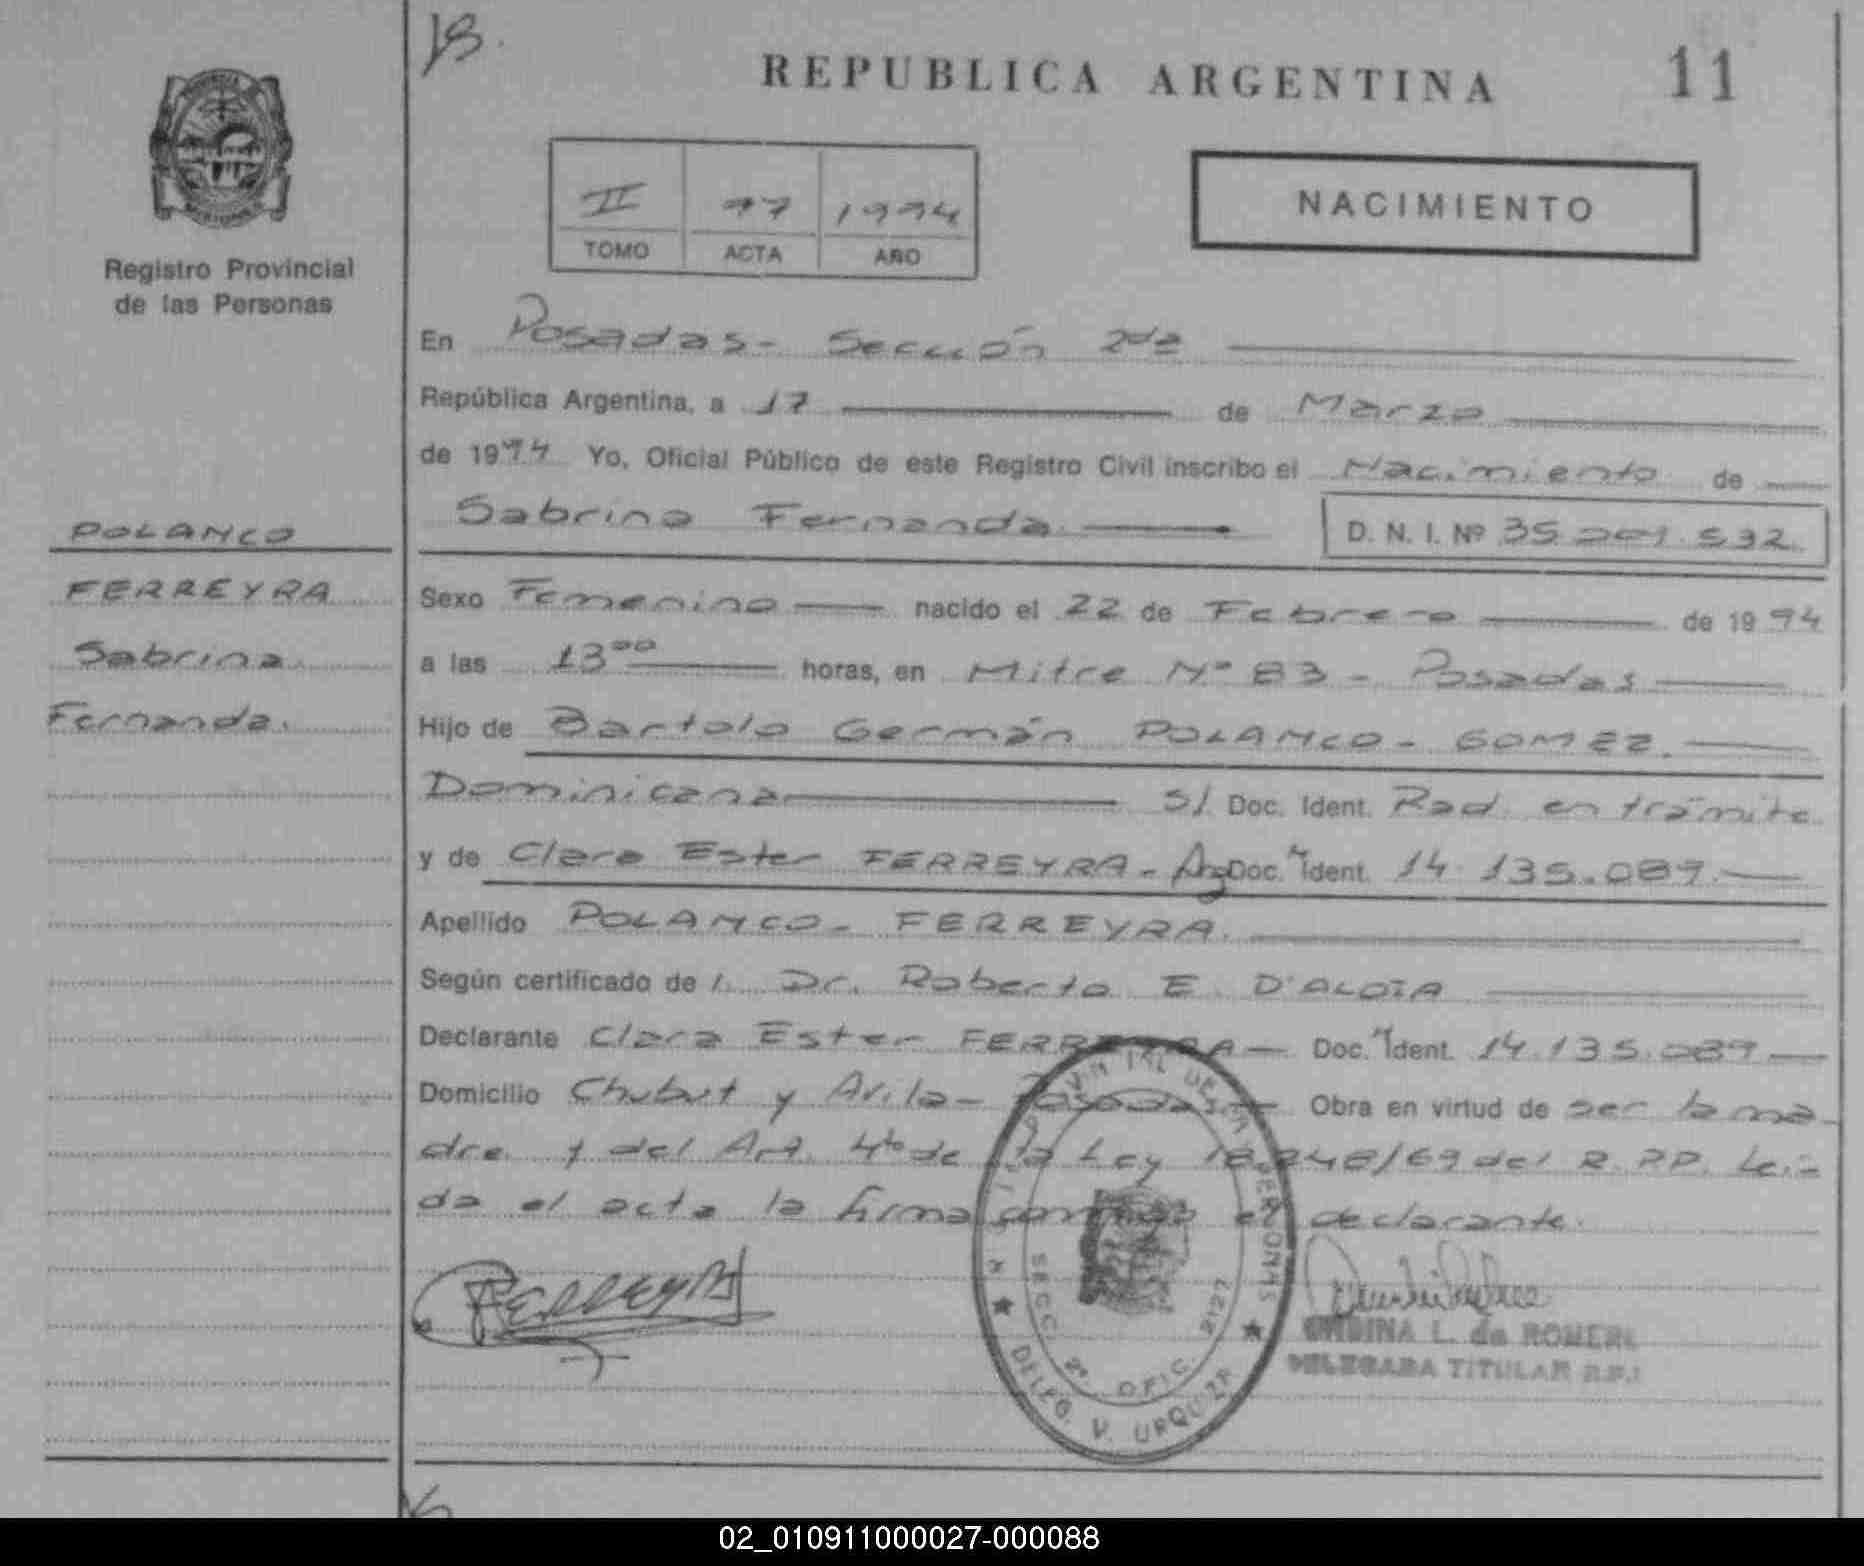 REPUBLICA ARGENTINA
11
Registro Provincial
de las Personas
II 97 1994
TOMO ACTA AÑO
NACIMIENTO
En Posadas - Sección 2da
República Argentina, a 17 de Marzo
de 1994 Yo, Oficial Público de este Registro Civil inscribo el Nacimiento de
Sabrina Fernanda D. N. I. Nº 35.201.532
POLANCO
FERREYRA
Sabrina
Fernanda.
Sexo Femenino nacido el 22 de Febrero de 1994
a las 13 00 horas, en Mitre Nº 83 - Posadas
Hijo de Bartolo Germán POLANCO - GOMEZ.
Dominicana S/ Doc. Ident. Rad. en trámite
y de Clara Ester FERREYRA - Arg Doc. Ident. 14.135.089.
Apellido POLANCO - FERREYRA.
Según certificado de l. Dr. Roberto E. D'ALOIA
Declarante Clara Ester FERREYRA - Doc. Ident. 14.135.089
Domicilio Chubut y Avila - Posadas - Obra en virtud de ser la ma-
dre y del Art. 4to de la Ley 18.248/69 del R.PP. Lei-
da el acta la firma conmigo el declarante.
FERREYRA
DE LAS PERSONAS
SECC. 2ª OFIC. 2127
DELEG. V. URQUIZA
L. de ROMERO
DELEGADA TITULAR R.P.
02_010911000027-000088